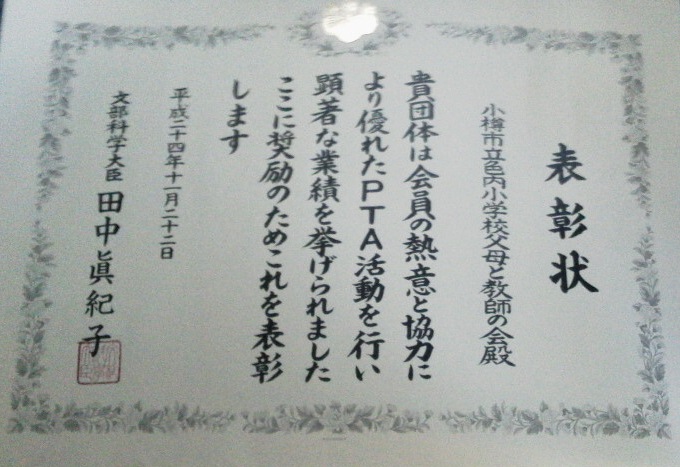 表彰状
小樽市立色内小学校父母と教師の会殿
貴団体は会員の熱意と協力に
より優れたPTA活動を行い
顕著な業績を挙げられました
ここに奨励のためこれを表彰
します
平成二十四年十一月二十二日
文部科学大臣 田中眞紀子